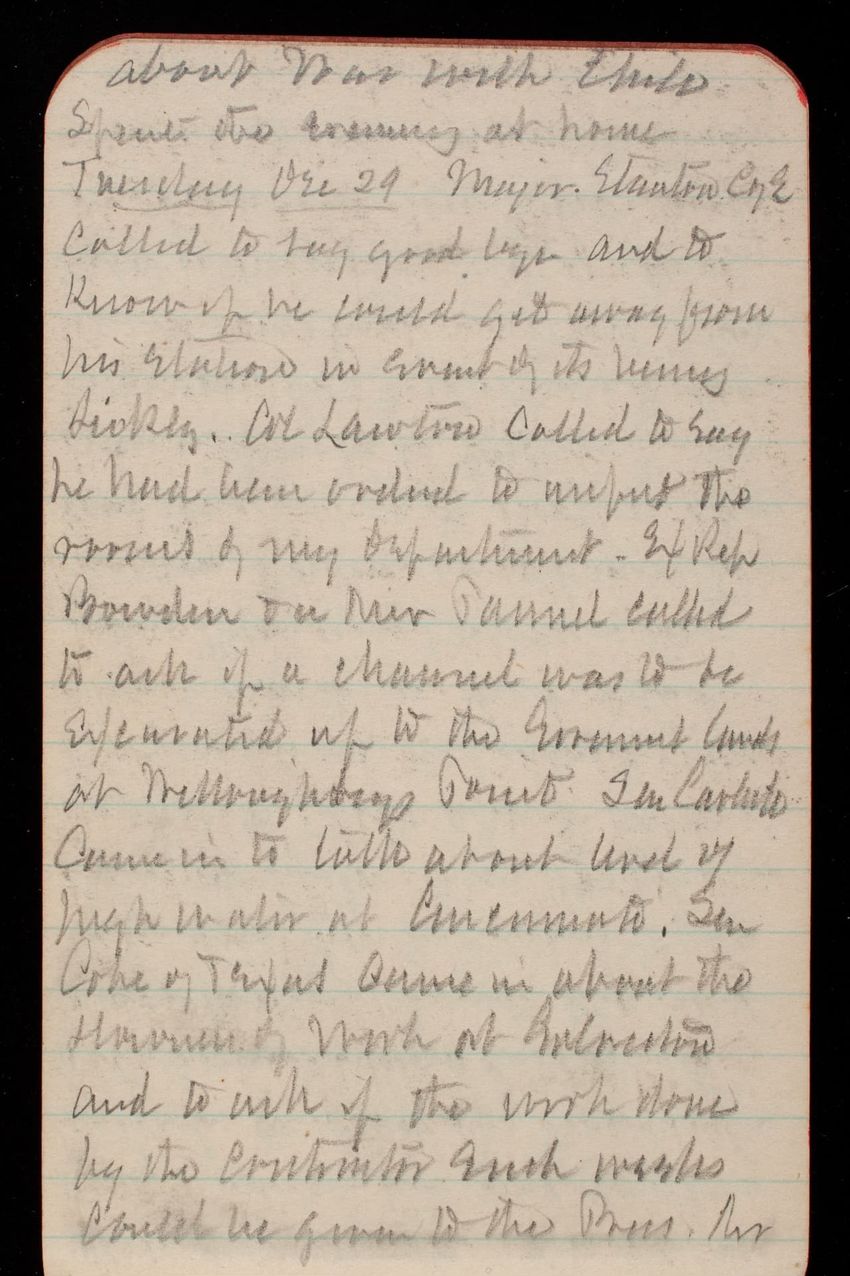 about War with Chile
Spent the evening at home
Tuesday Dec 29 Major. Stanton C of E
Called to say good bye and to
Know if he could get away from
his station in event of its being
sickly. Col Lawton Called to say
he had been ordered to inspect the
rooms of my Department. Ex Rep
Bowden on New Tunnel called
to ask if a channel was to be
Excavated up to the Government lands
at Willoughbys Point. Gen Carlisle
Came in to talk about level of
high water at Cincinnati. Sen
Coke of Texas Came in about the
slowness of Work at Galveston
and to ask if the work done
by the Contractor each week
could be given to the Press.